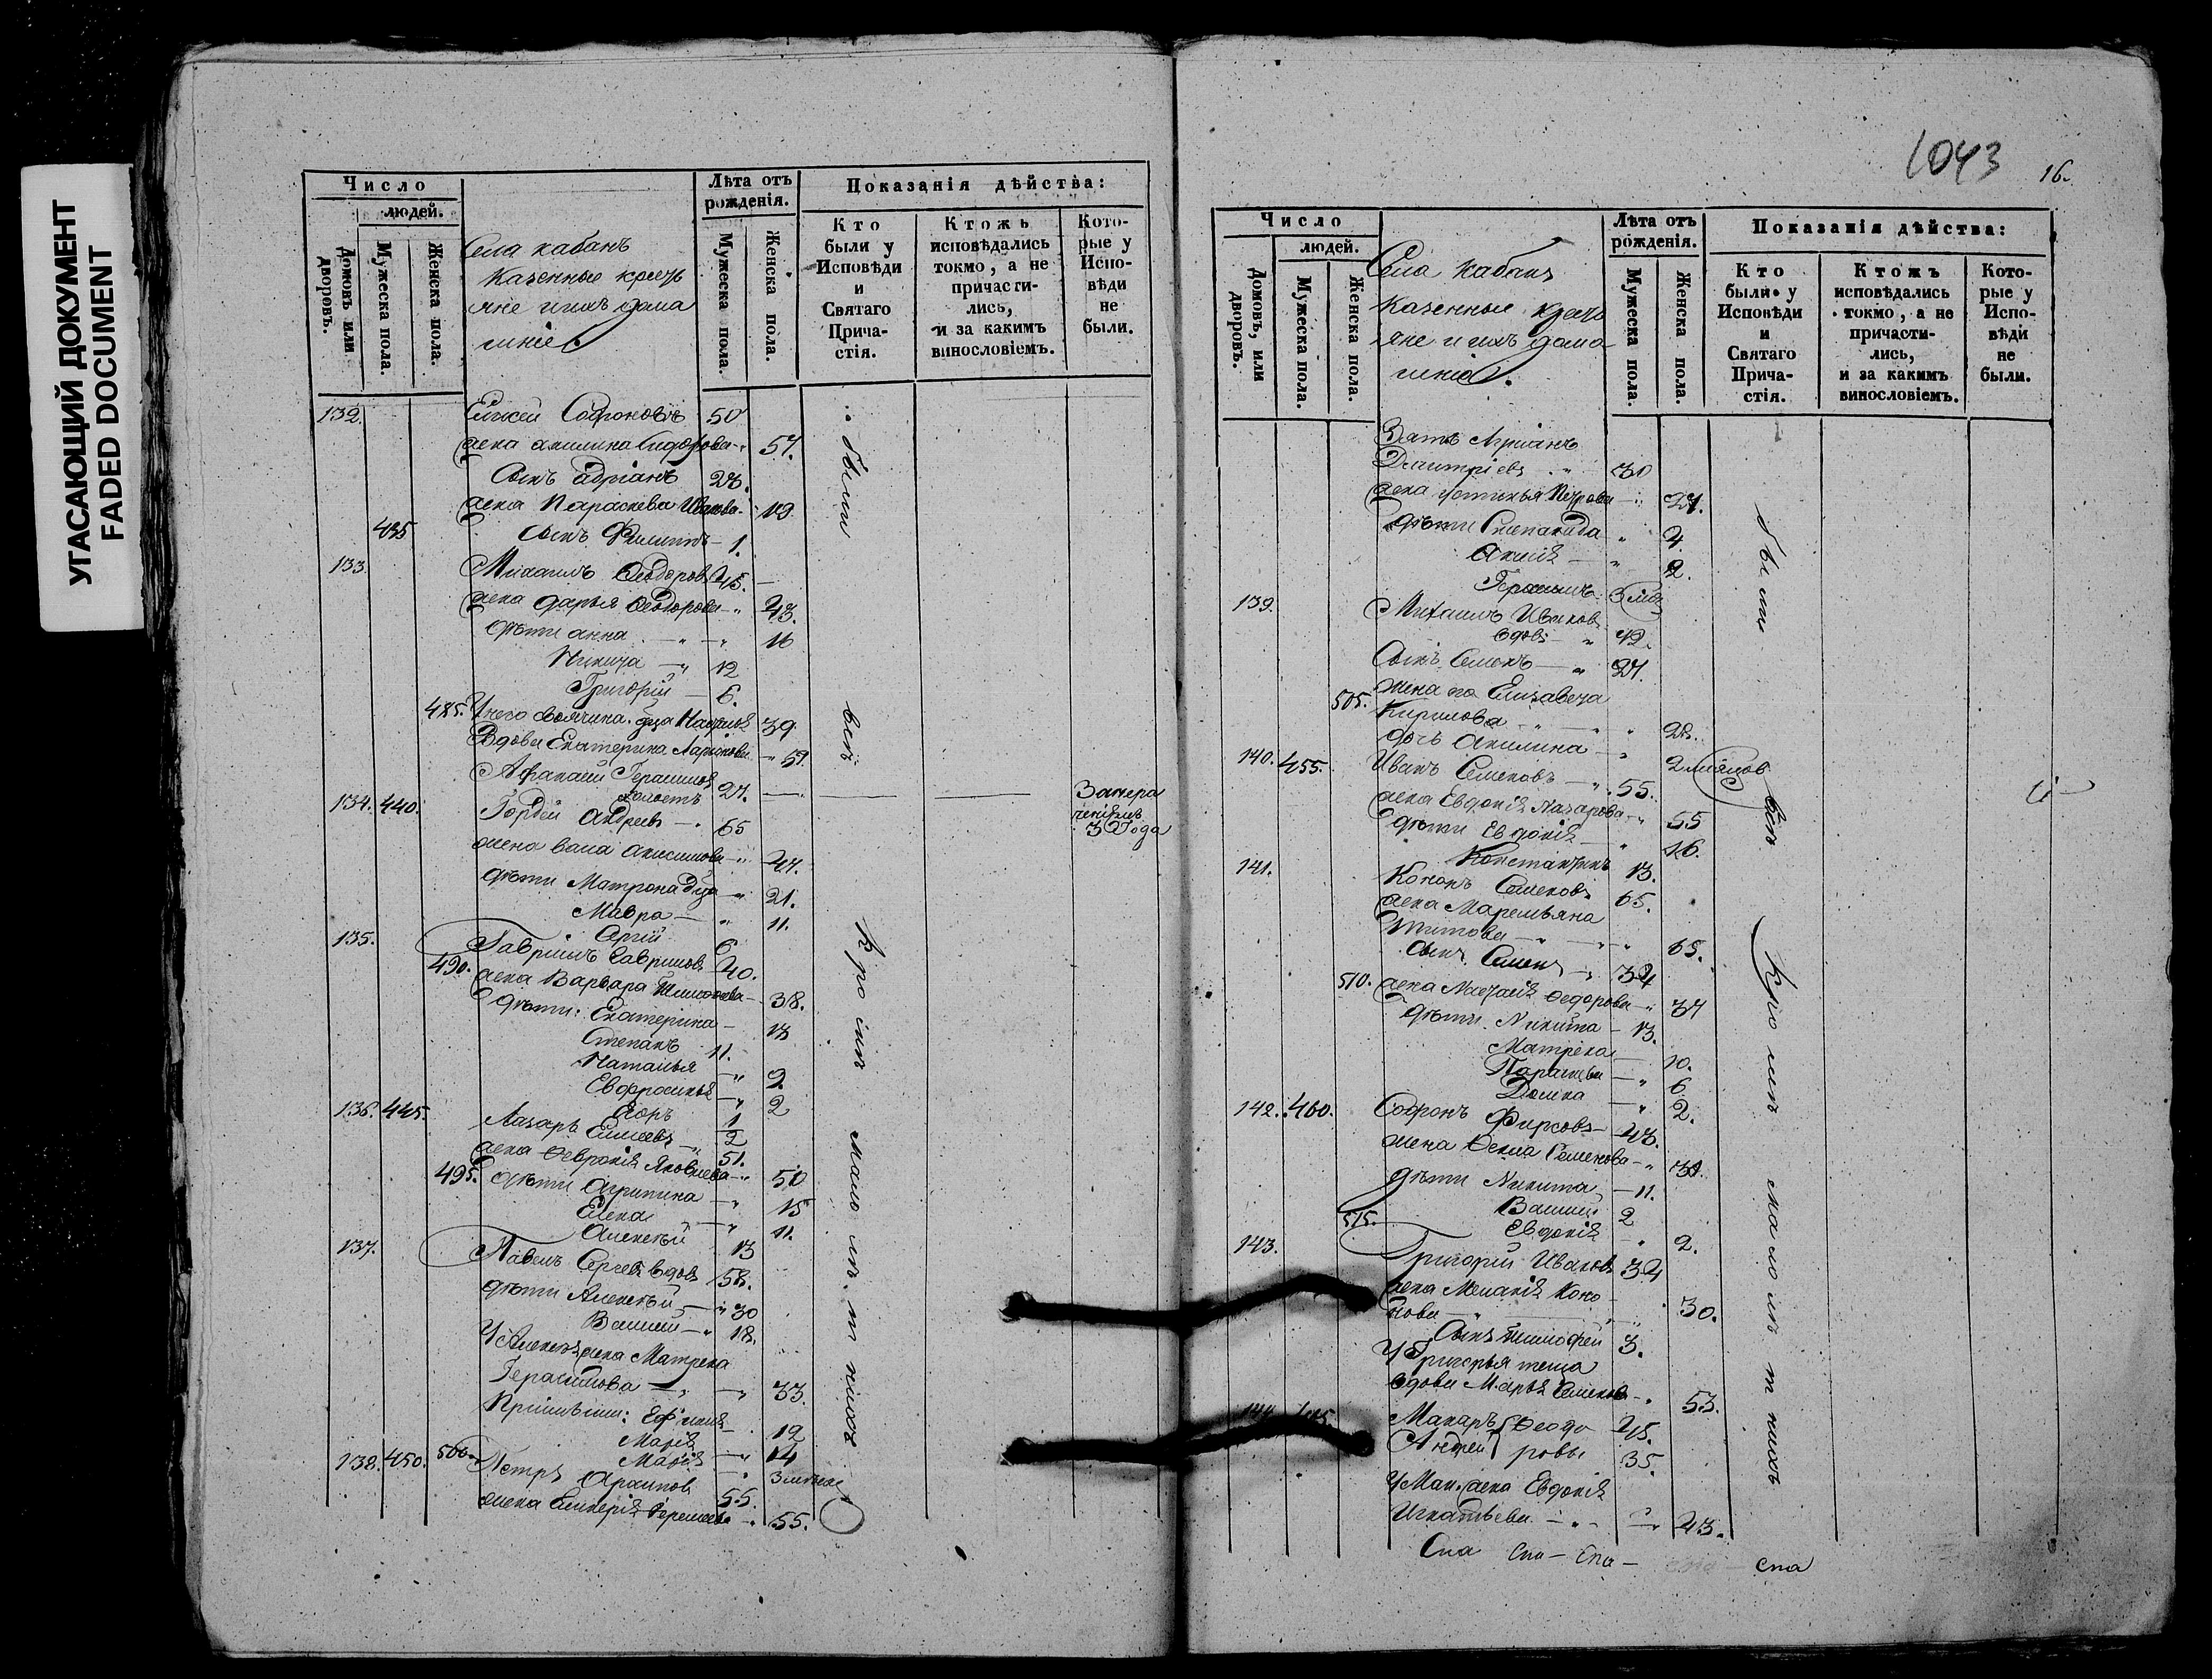 УГАСАЮЩИЙ ДОКУМЕНТ
FADED DOCUMENT
Число
людей.
Домовъ или дворовъ.
Мужеска пола.
Женска пола.
Села Кабанъ
Казенные кресть
яне и ихъ дома
шніе.
Лѣта отъ рожденія.
Мужеска пола.
Женска пола.
Показанія дѣйства:
Кто были у Исповѣди и Святаго Прича- стія.
Ктожъ исповѣдались токмо, а не причасти- лись, и за какимъ винословіемъ.
Кото- рые у Испо- вѣди не были.
132. Софроновъ 50
жена Акилина Сидорова 57.
Сынъ Адріанъ 23.
жена Параскева Иванова 19
435 Сынъ Филиппъ 1.
133. Михаилъ Ѳеодоровъ 45.
жена Дарья Ѳеодорова 43.
дѣти Анна 16
Никита 12
Григорій 6.
485. У него своячина 39.
Вдова Екатерина 59.
Афанасій Герасимовъ
холостъ 27.
134. 440. Гордей Андреевъ 65
жена 47.
дѣти Матрона 21.
Мавра 11.
Сергій 6
135. Гавріилъ Гавриловъ 40.
490. жена Варвара 38.
дѣти: Екатерина 13
Степанъ 11.
Наталья 9.
Евфросинья 2
Егоръ 1
136. 445. Лазарь Елисеевъ 51.
жена Февронія Яковлева 50
495. дѣти Агрипина 15
Елена 11.
Алексѣй 13
137. Павелъ Сергеевъ вдовъ 58.
дѣти Алексѣй 30
Василій 18.
У Алексѣя жена Матрена
Герасимова 33.
Ефимія 12
Марія
Марія 3 мѣсяца
138. 450. 500. Петръ Архиповъ 55.
жена Гликерія 55.
были
всѣ
Кро мѣ мало лѣт нихъ
3 года
1043
16.
Число
людей.
Домовъ, или дворовъ.
Мужеска пола.
Женска пола.
Села Кабанъ
Казенные кресть
яне и ихъ дома
шніе.
Лѣта отъ рожденія.
Мужеска пола.
Женска пола.
Показанія дѣйства:
Кто были у Исповѣди и Святаго Прича- стія.
Ктожъ исповѣдались токмо, а не причасти- лись, и за какимъ винословіемъ.
Кото- рые у Испо- вѣди не были.
Зять
Дмитріевъ 30
жена Устинья Петрова 27.
дѣти Степанида 4.
2.
Герасимъ
139. Михаилъ Ивановъ
вдовъ 42.
Сынъ Семенъ 27.
жена его Елизавета
505. Кирилова 22.
дочь Акилина 2 мѣсяцов
140. 455. Иванъ Семеновъ 55.
жена Евдокія Назарова 55
дѣти Евдокія 16.
Константинъ 13.
141. Кононъ Семеновъ 65.
жена Маремьяна
Титова 65.
Сынъ Семенъ 34
510. жена Наталія Ѳедорова 37
дѣти Никита 13.
Матрена 10.
Параскева 6
Домна 2.
142. 460. Софронъ Фирсовъ 43.
жена Ѳекла Семенова
дѣти Никита 11.
Василій 2
515. Евдокія 2.
143. Григорій Ивановъ 34
жена Меланія Коно
нова 30.
Сынъ Тимофей 3.
У Григорья теща
вдова Марья Семенова 53.
144 Макаръ Ѳеодо 45.
Андрей ровы 35.
У Мак. жена Евдокія
Игнатьева 43.
были
всѣ
Кро мѣ мало лѣт нихъ
Спа Спа — Спа — Спа — Спа